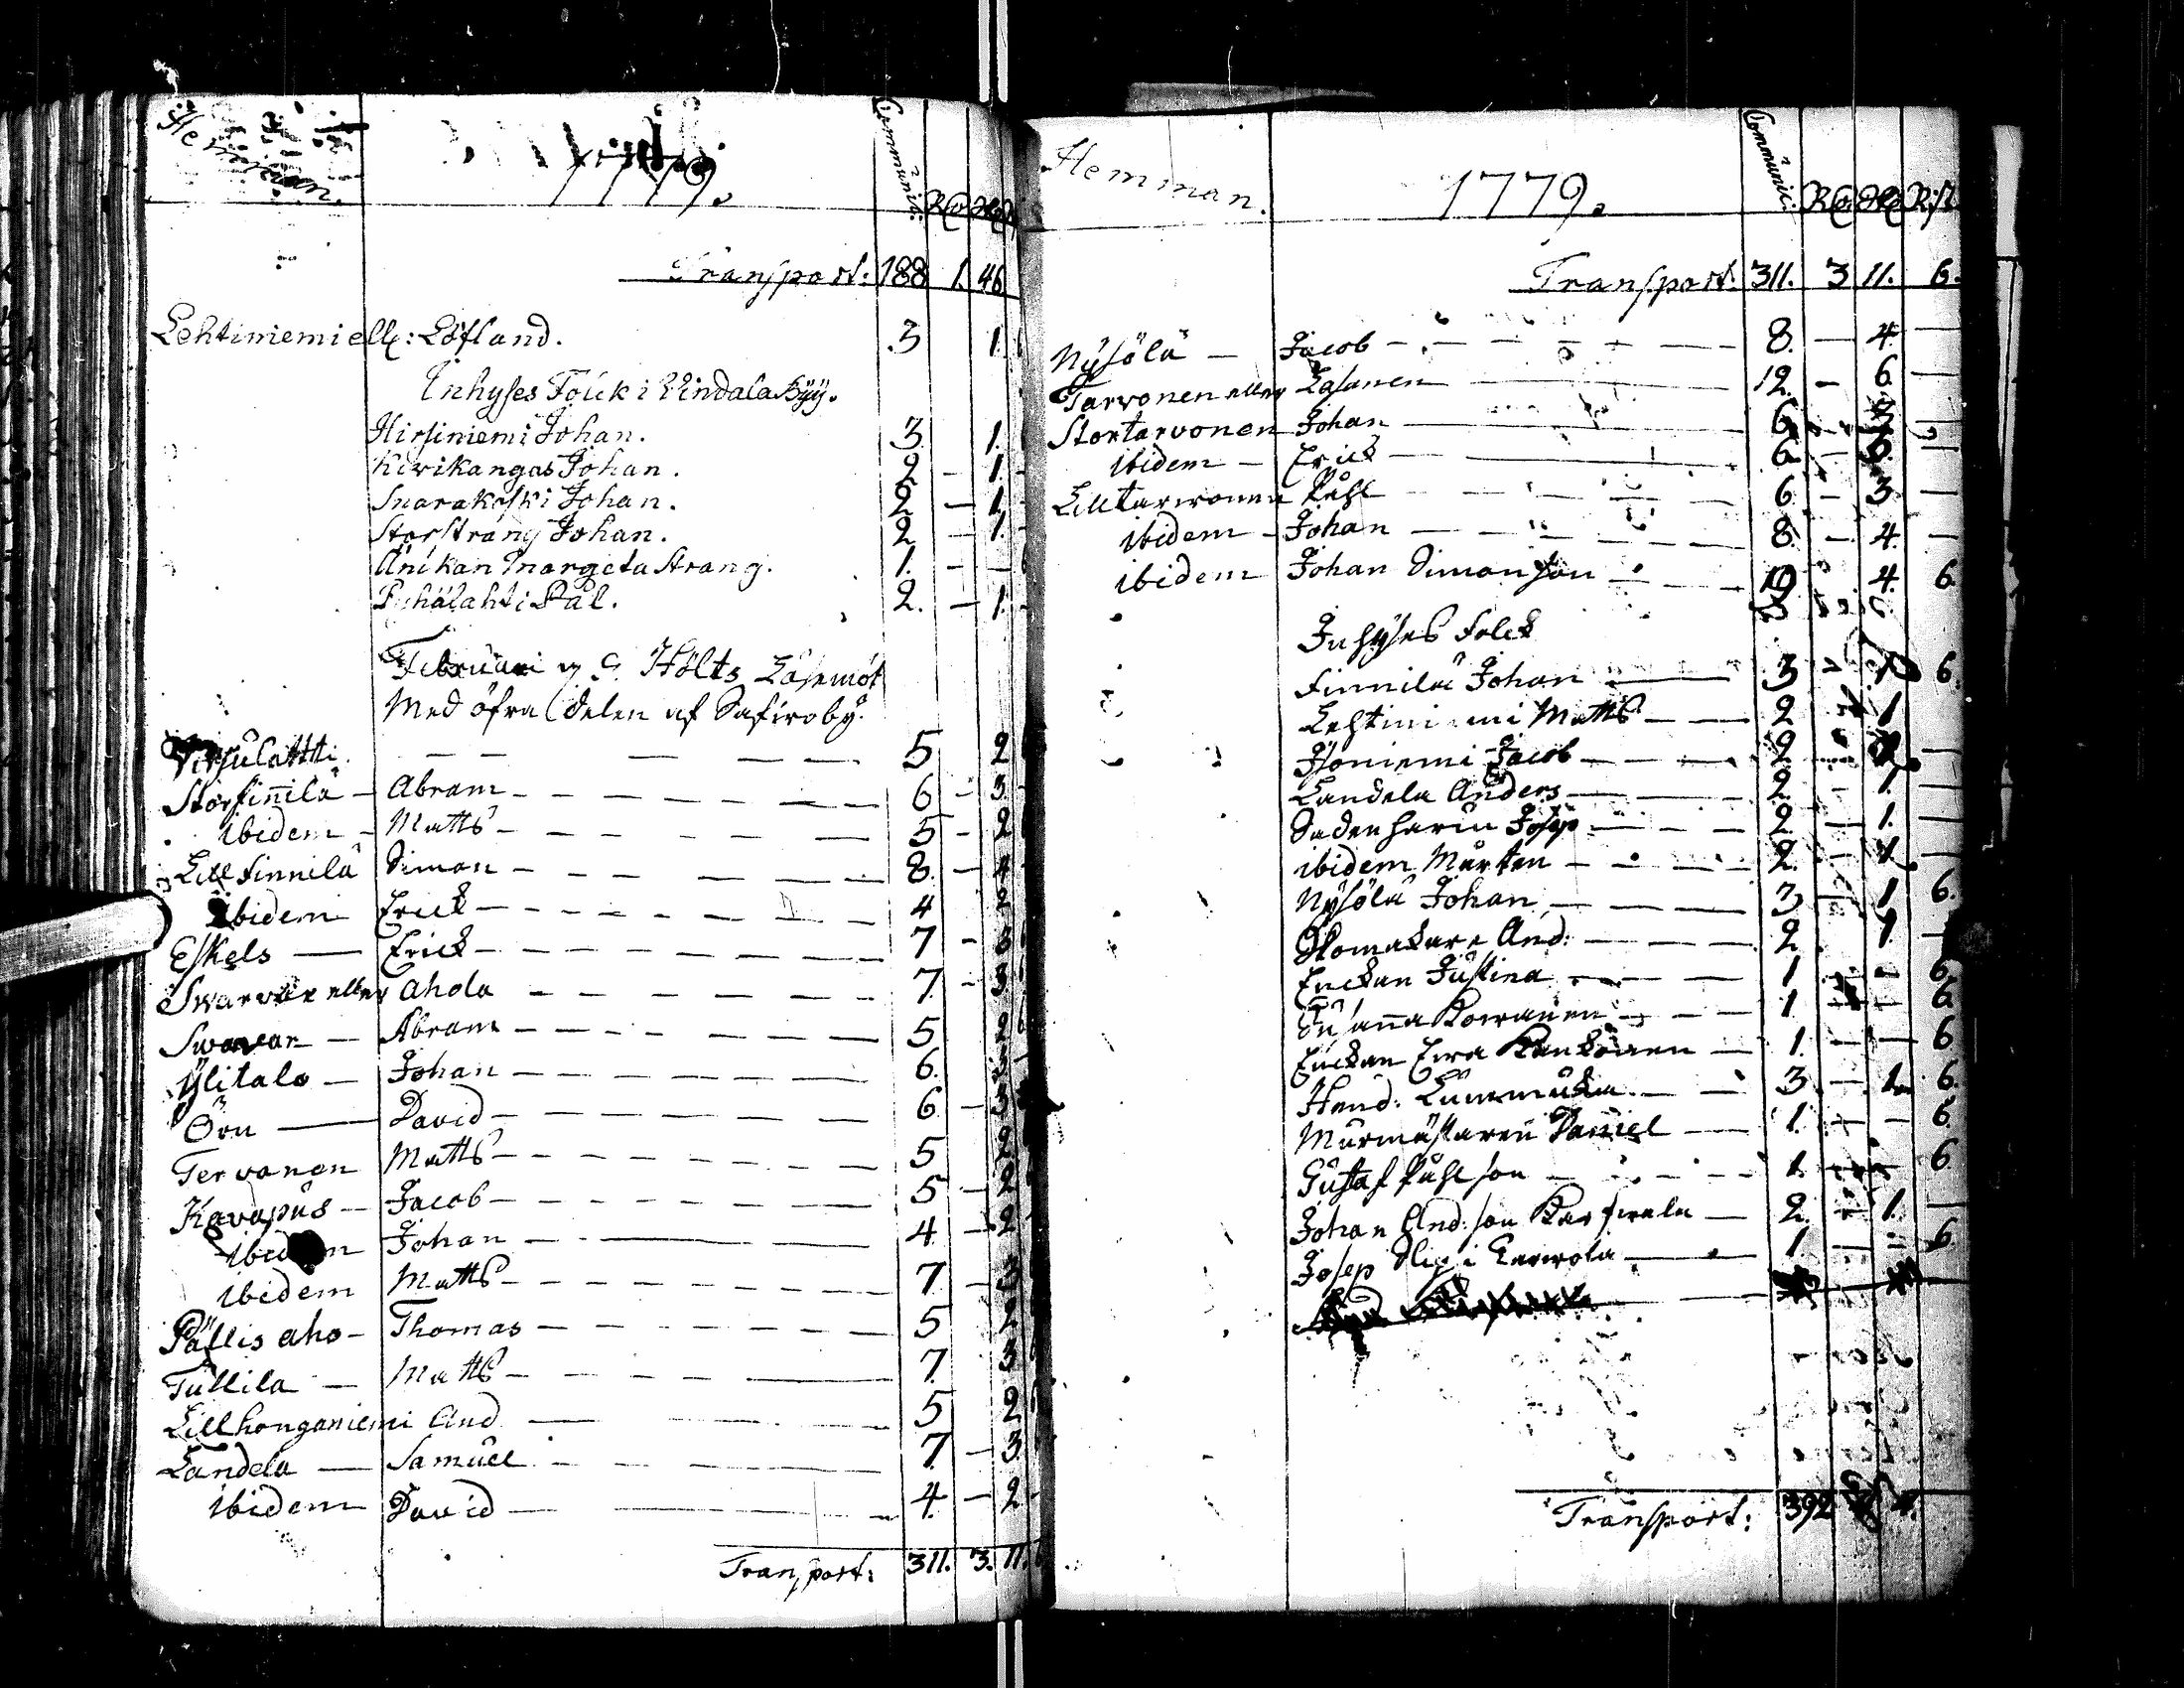 Hemman. 1779. Communic: RD
Transport: 188 1. 46
Lehtiniemi ell: Löfland. 3 1.
Inhyses Folck i Vindala Byy.
Hirsiniemi Johan. 3. 1.
Kirikangas Johan. 2 - 1.
Snarakoski Johan. 2 - 1.
Storstrang Johan. 2 - 1.
Änikan Margeta Strang. 1. - -
Pyhälahti Pål. 2. - 1.
Februari Hölts Läsemöt
Med öfra delen af Safiroby.
Virsulattti. 5 2
Storfinnilä - Abram - 6 - 3.
ibidem - Matts - 5 - 2
Lill finnilä Simon - 8. - 4
ibidem Erick - 4 2
Eskels - Erick - 7 - 3
Swarvar eller Ahola - 7. - 3.
Swarvar - Abram - 5 2
Ylitalo - Johan - 6. 3
Örn - David - 6. - 3
Tervonen Matts - 5 2
Kavapus - Jacob - 5 - 2
ibidem Johan - 4 - 2
ibidem Matts - 7 - 3
Pällis aho - Thomas - 5 2
Tullila - Matts - 7. 3
Lillhonganiemi And - 5 2
Landela - Samuel - 7. - 3
ibidem David - 4. - 2
Transport: 311. 3. 11.
Hemman. 1779. Communic: RD
Transport: 311. 3 11. 6.
Nysölä - Jacob - 8. - 4. -
Tarvonen eller Lasanen - 12. - 6. -
Stortarvonen Johan - 6
ibidem - Erick - 6 - 3. -
Lilltarwonen Påhl - 6 - 3 -
ibidem - Johan - 8. - 4. -
ibidem Johan Simonson - 10 4. 6.
Inhyses Folck
Finnilä Johan - 3 1 6.
Lehtiniemi Matts - 2 1
Isoniemi Jacob - 2 -
Landela Anders - 2. - 1.
Sadenhariu Josep - 2 - 1. -
ibidem Mårten - 2. - 1. -
Nysölä Johan - 3 - 1 6.
Skomakare And: - 2. 1. -
Enckan Justina - 1 - - 6.
Susanna - 1. - 6.
Enckan Ewa - 1. - - 6
Hend: - 3 - 1. 6.
Murmästaren Daniel - 1. - - 6.
Gustaf Påhlson - 1. - 6.
Johan And:son - 2. - 1. -
Josep - 1. - - 6
Transport: 392